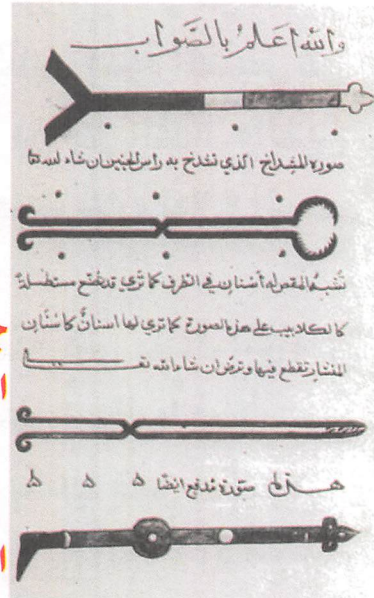 والله اعلم بالصواب
صورة المشداخ الذي تشدخ به راس الجنين ان شاء الله تعا
تشبه المقص له أسنان في الطرف كما تري قد تصنع مستطيلة
كالكلاليب على هذه الصورة كما تري لها اسنان كاسنان
المنشار تقطع فيها وترض ان شاء الله تعـــلى
هذه صورة مدفع ايضا ه ه ه